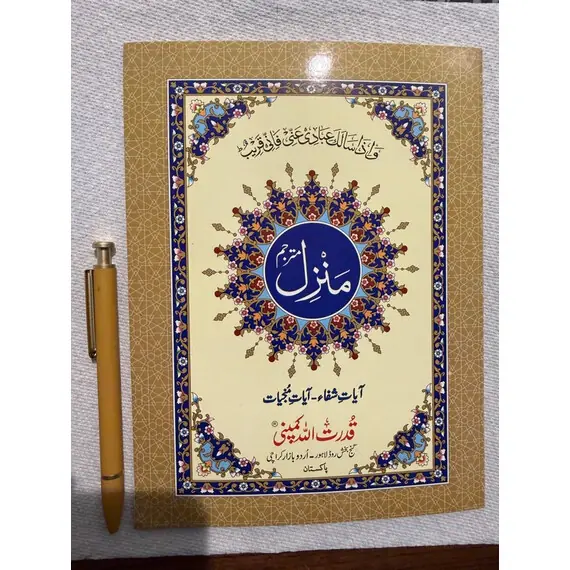 وَإِذَا سَأَلَكَ عِبَادِي عَنِّي فَإِنِّي قَرِيبٌ ط
مترجم
مَنْزِل
آیاتِ شفاء - آیاتِ مُنجیات
قُدرت اللہ کمپنی ®
گنج بخش روڈ لاہور - اُردو بازار کراچی
پاکستان